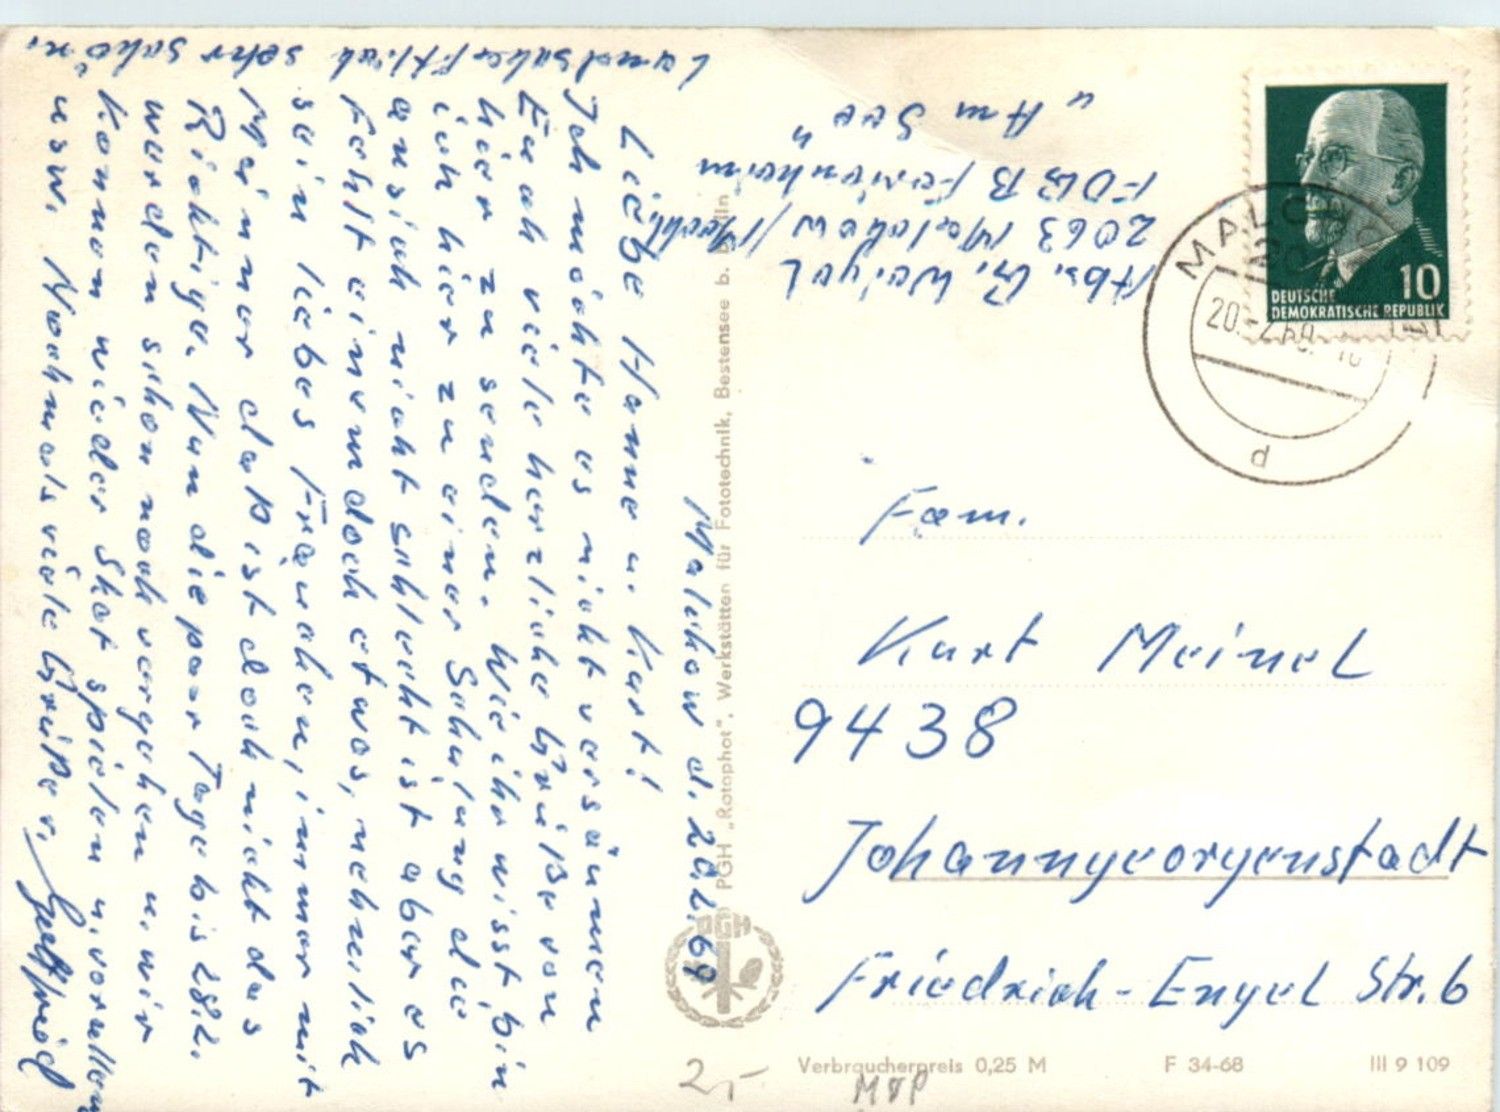 Malchow d. 20.2.69
Liebe Hanne u. Kurt!
Ich möchte es nicht versäumen
Euch viele herzliche Grüße von
hier zu senden. Wie ihr wisst bin
ich hier zu einer Schulung die
ansich nicht schlecht ist aber es
fehlt einem doch etwas, nehmlich
sein liebes Frauchen, immer mit
Männer daß ist doch nicht das
Richtige. Nun die paar Tage bis 28.2.
werden schon noch vergehen u. wir
können wieder Skat spielen u. vor allem
usw. Nochmals viele Grüße v. Gottfried
Landschaftlich sehr schön.
Abs. G. Weigel
2063 Malchow/Meckl.
FDGB Ferienheim
"Am See"
DEUTSCHE
DEMOKRATISCHE REPUBLIK
10
MALCHOW
20.-2.69
d
Fam.
Kurt Meinel
9438
Johanngeorgenstadt
Friedrich-Engel Str. 6
PGH „Rotophot", Werkstätten für Fototechnik, Bestensee b. Berlin
PGH
Verbraucherpreis 0,25 M
F 34-68
III 9 109
2,-